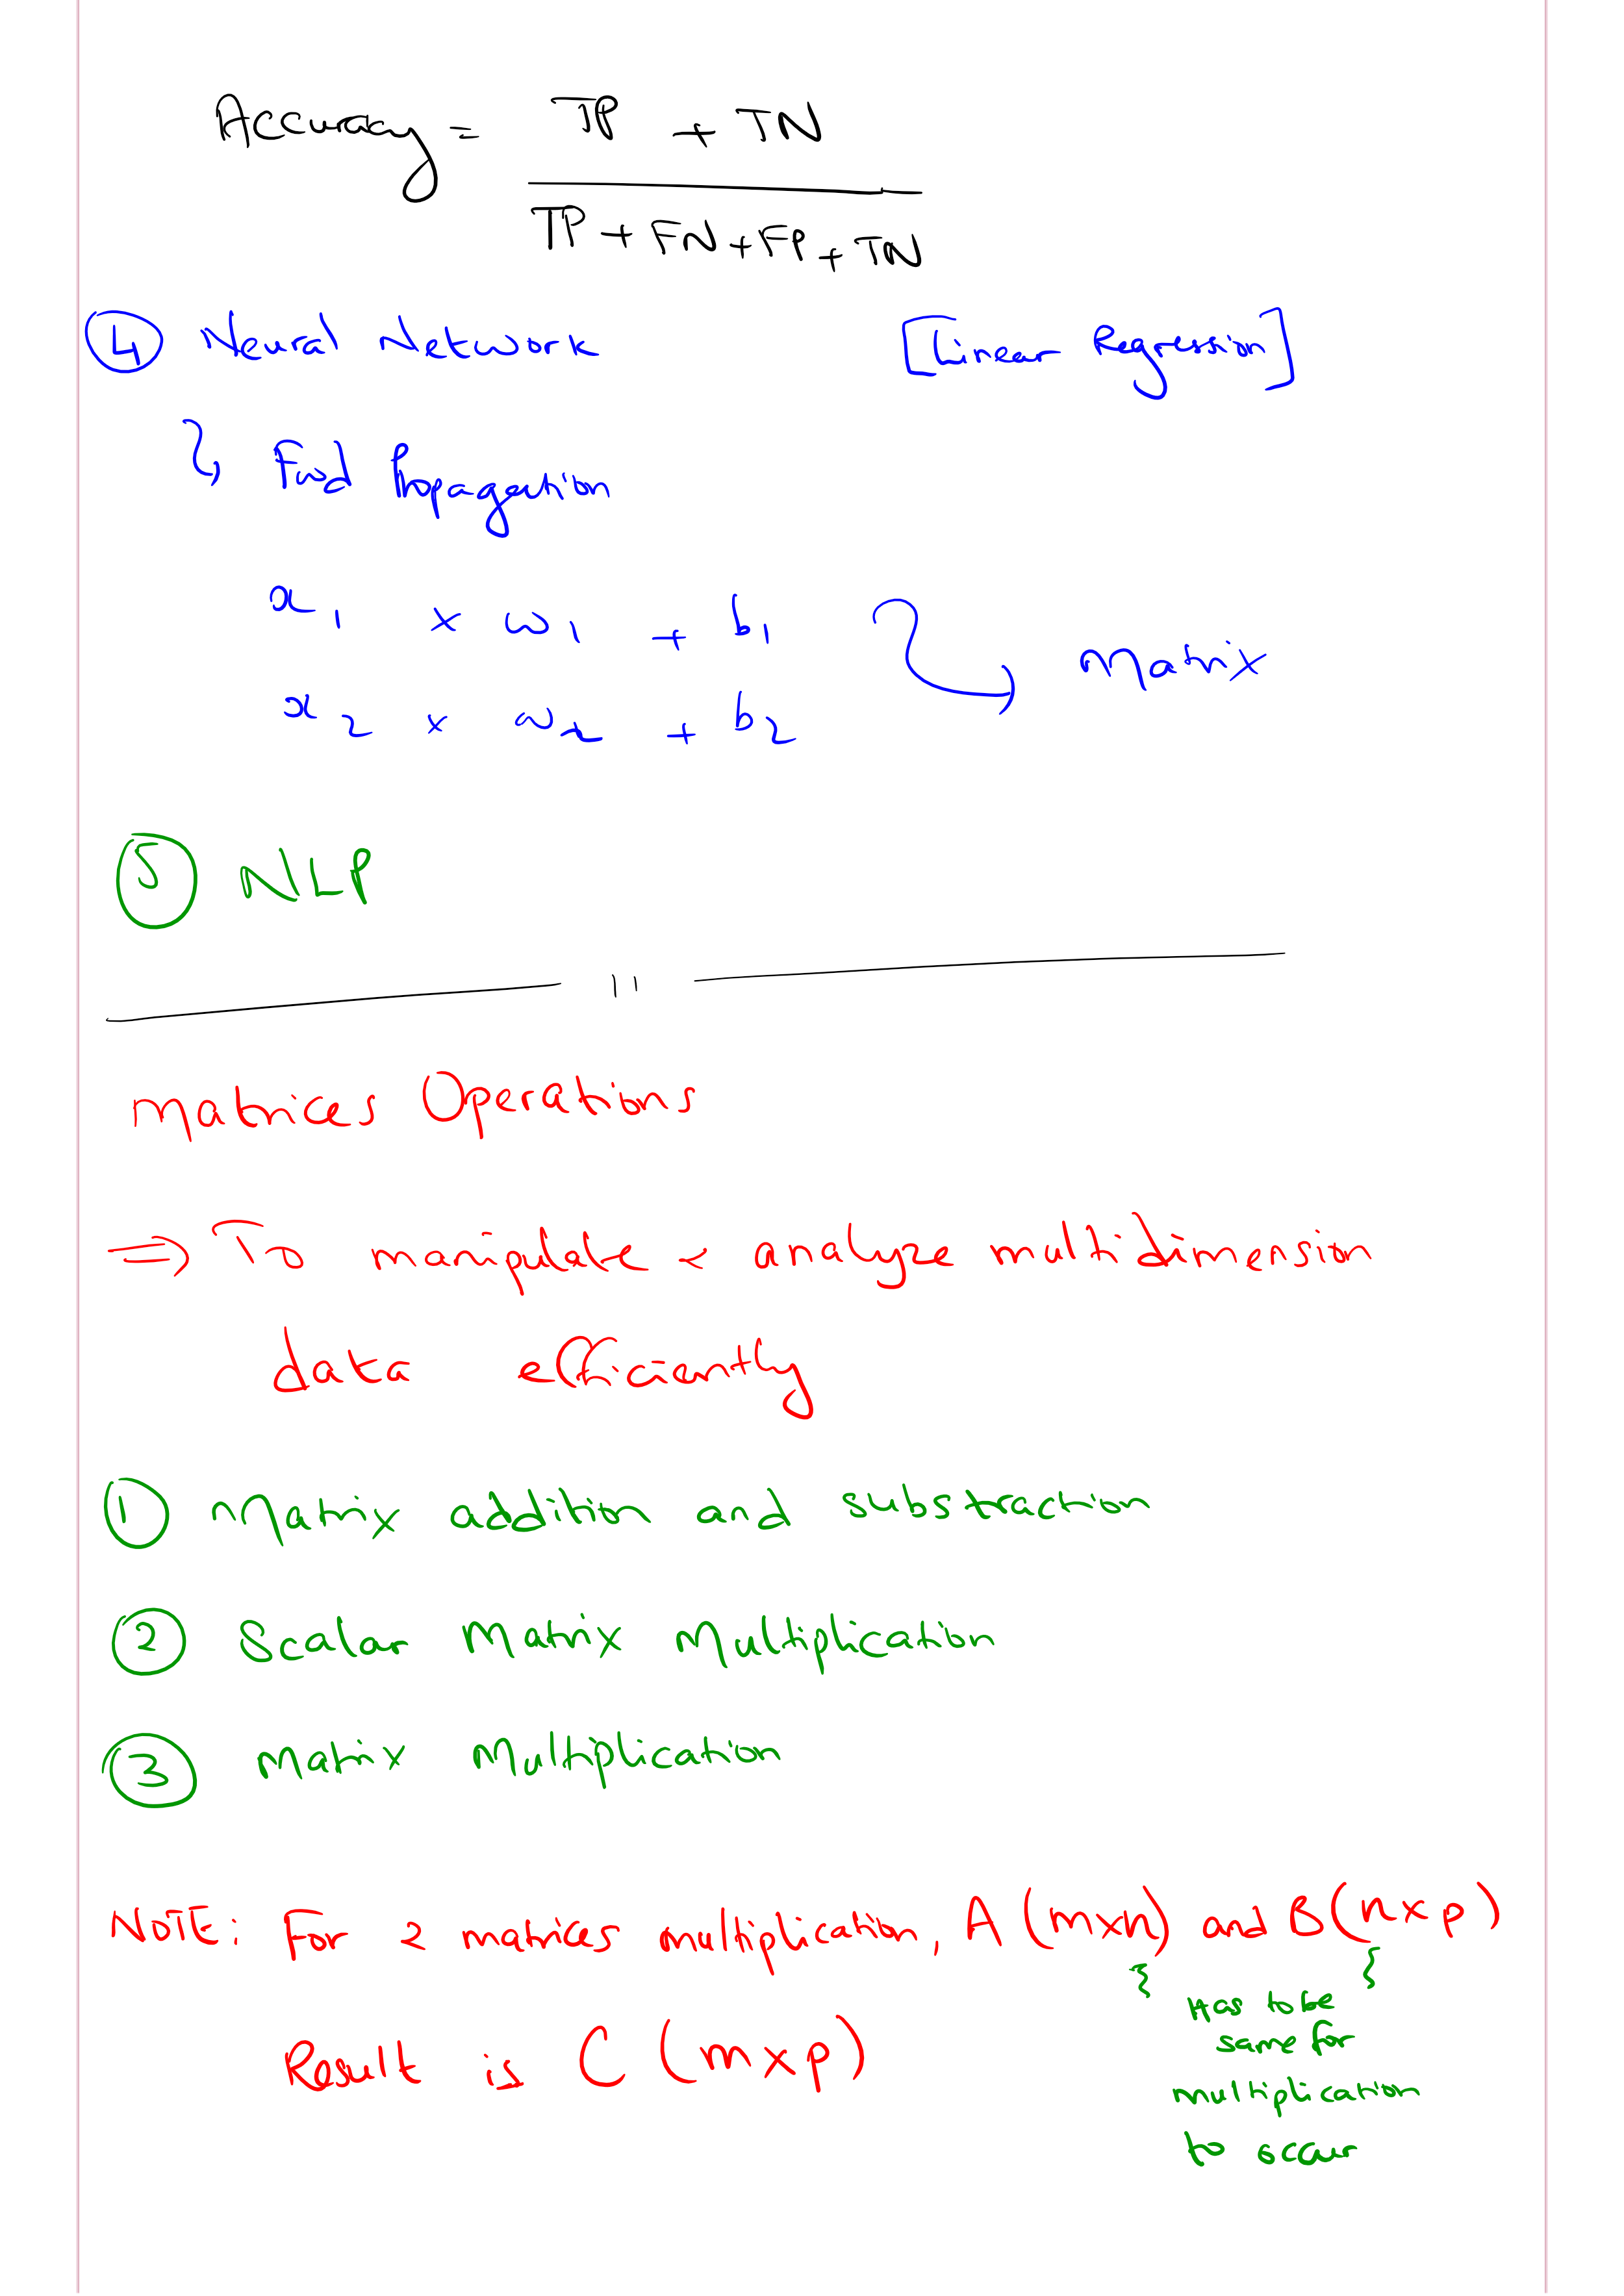 Accuracy = TP + TN
TP + FN + FP + TN
④ Neural Network [Linear Regression]
Fwd Propagation
x₁ × ω₁ + b₁
Matrix
x₂ × ω₂ + b₂
⑤ NLP
Matrices Operations
⇒ To maniplate & analyze multidimension
data efficiantly
① Matrix addition and substraction
② Scalar Matrix Multiplication
③ Matrix Multiplication
NOTE: For 2 matrices multiplication, A (m×n) and B (n×p)
Has to be
same for
Result is C (m×p)
multiplication
to occur